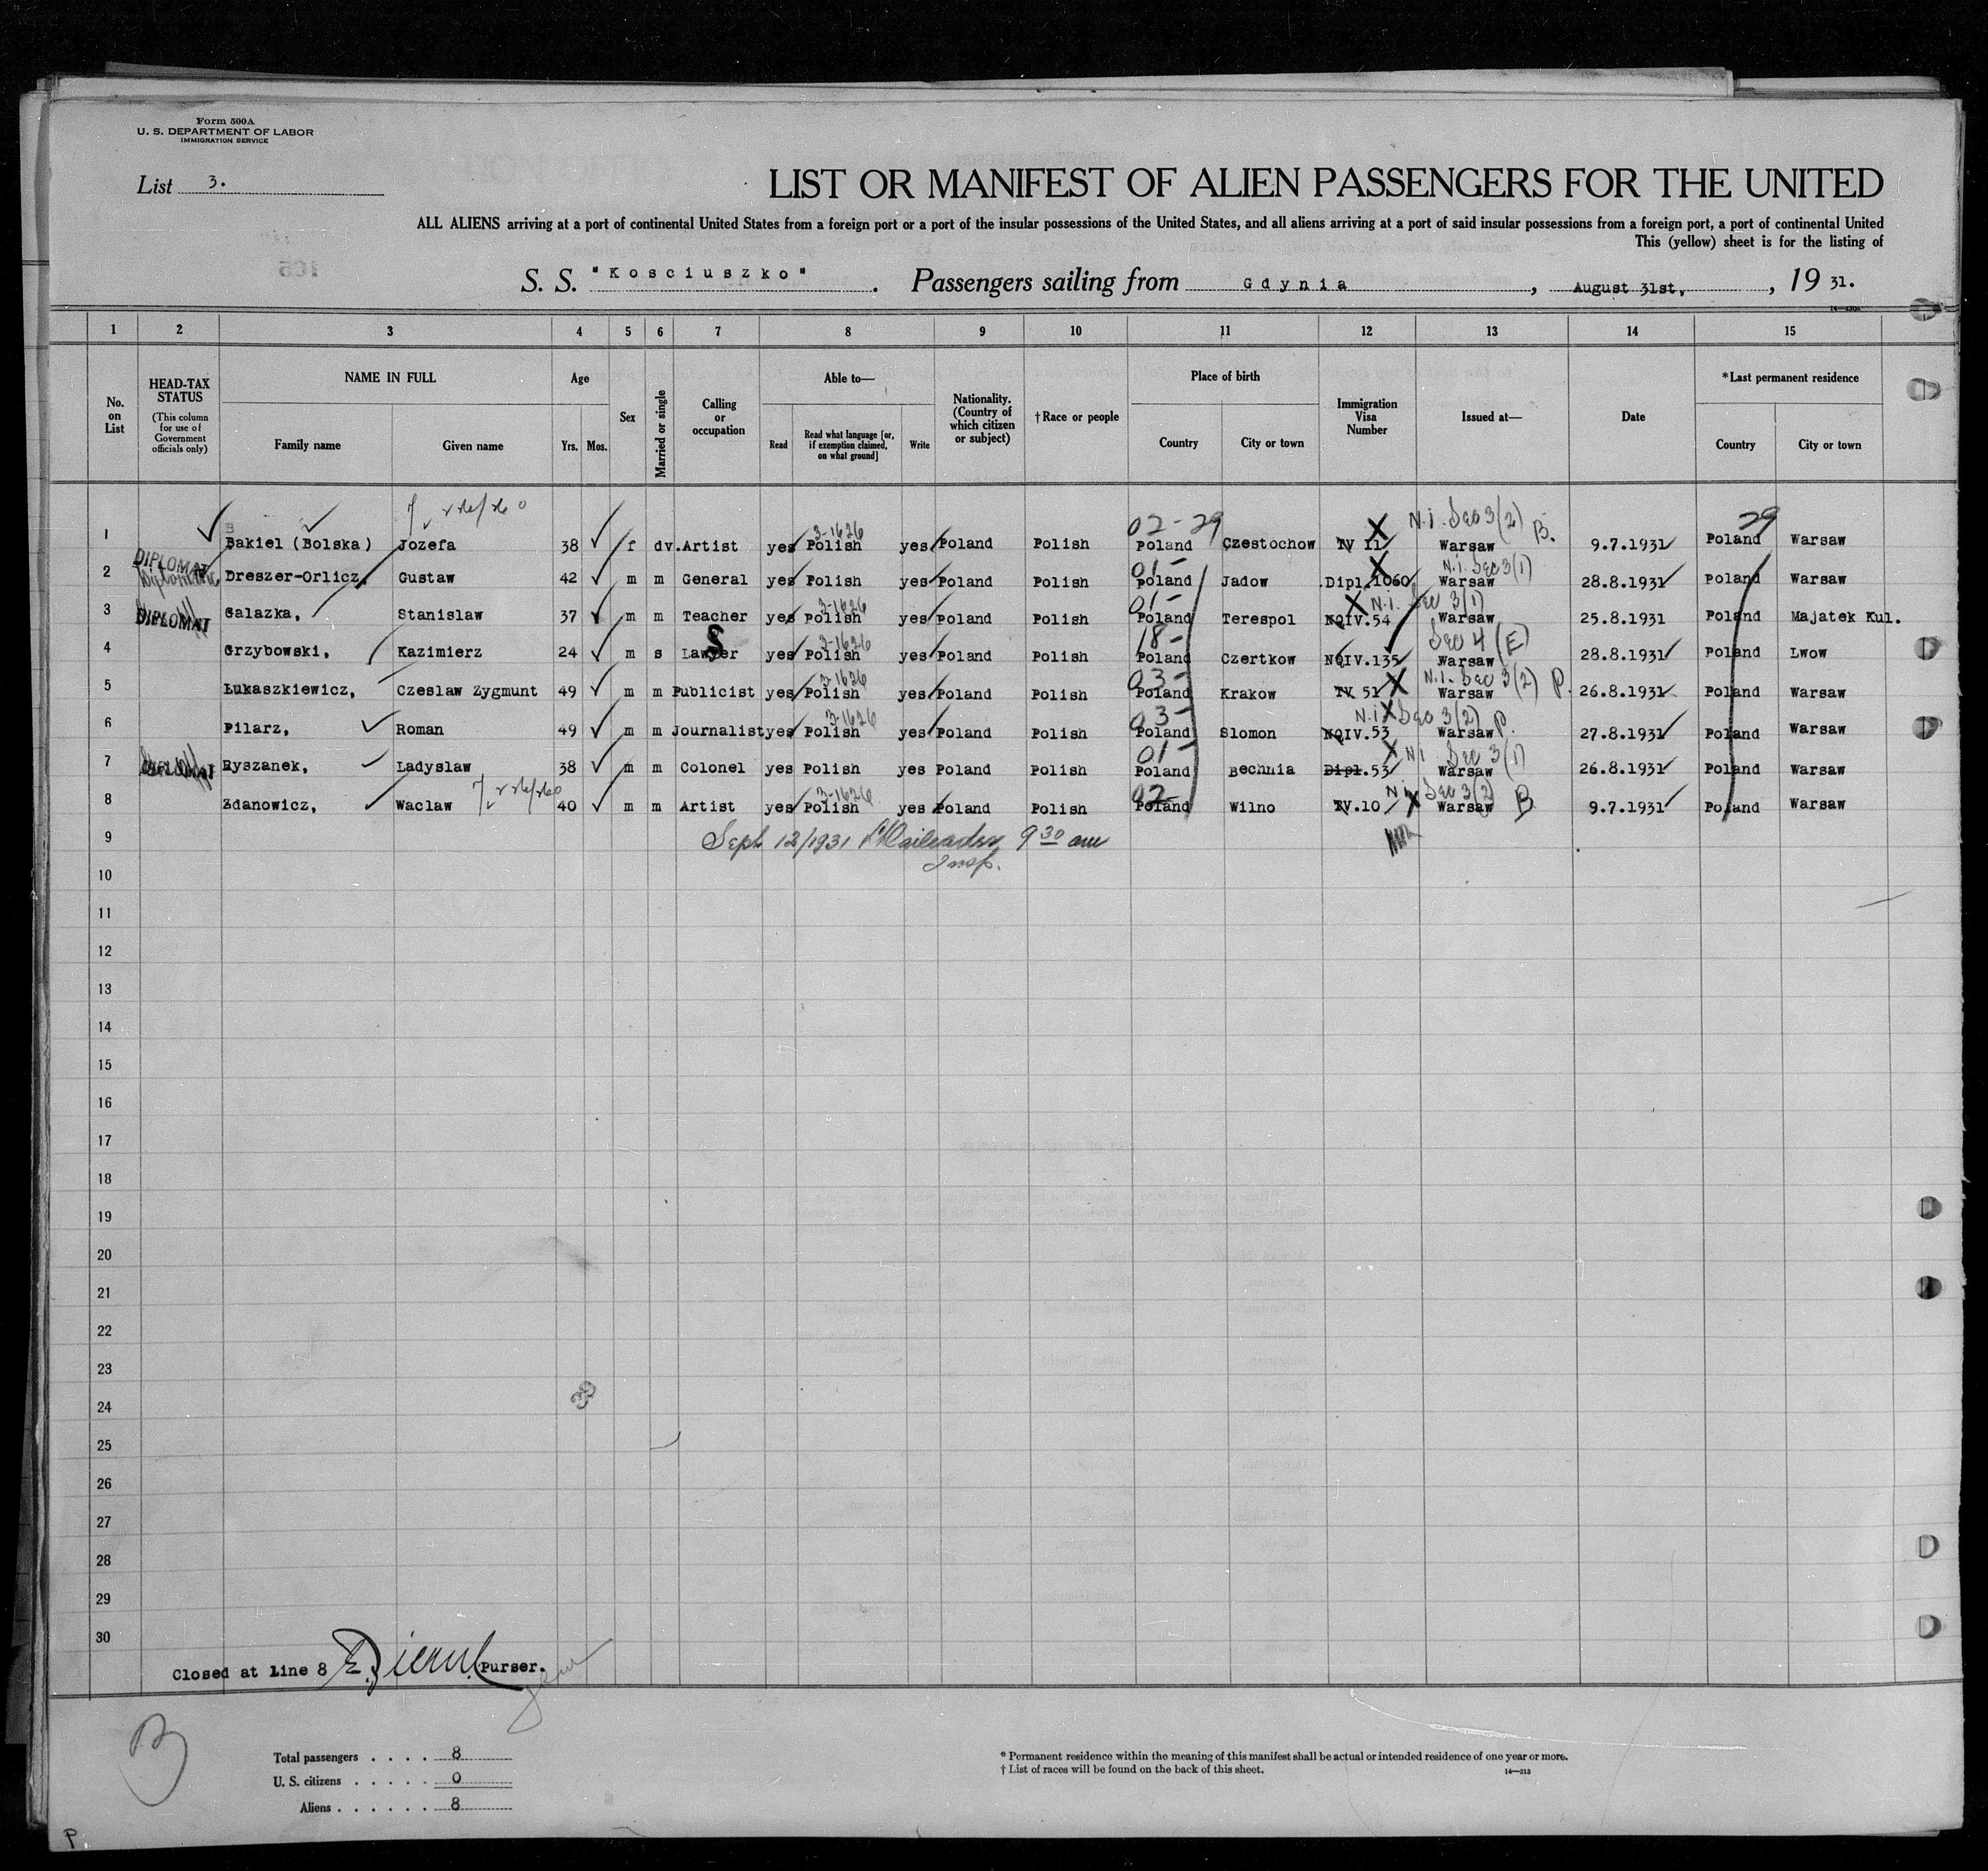 Form 500A
U. S. DEPARTMENT OF LABOR
IMMIGRATION SERVICE
List 3.
LIST OR MANIFEST OF ALIEN PASSENGERS FOR THE UNITED
ALL ALIENS arriving at a port of continental United States from a foreign port or a port of the insular possessions of the United States, and all aliens arriving at a port of said insular possessions from a foreign port, a port of continental United
This (yellow) sheet is for the listing of
S. S. "Kosciuszko". Passengers sailing from Gdynia, August 31st,, 19 31.
1 2 3 4 5 6 7 8 9 10 11 12 13 14 15
No. on List
HEAD-TAX STATUS (This column for use of Government officials only)
NAME IN FULL Family name Given name
Age Yrs. Mos.
Sex
Married or single
Calling or occupation
Able to— Read Read what language [or, if exemption claimed, on what ground] Write
Nationality. (Country of which citizen or subject)
†Race or people
Place of birth Country City or town
Immigration Visa Number
Issued at—
Date
*Last permanent residence Country City or town
02-29 N.i. Sec 3(2) B. 29
3-1626
1 Bakiel (Bolska) Jozefa 38 f dv. Artist yes Polish yes Poland Polish Poland Czestochow IV 11 Warsaw 9.7.1931 Poland Warsaw
DIPLOMAT 01- N.i. Sec 3(1)
2 Diplomatic Dreszer-Orlicz, Gustaw 42 m m General yes Polish yes Poland Polish Poland Jadow Dipl.1060 Warsaw 28.8.1931 Poland Warsaw
3-1626 01- N.i. Sec 3(1)
3 DIPLOMAT Galazka, Stanislaw 37 m m Teacher yes Polish yes Poland Polish Poland Terespol NQIV.54 Warsaw 25.8.1931 Poland Majatek Kul.
S 3-1626 18- Sec 4 (E)
4 Grzybowski, Kazimierz 24 m s Lawyer yes Polish yes Poland Polish Poland Czertkow NQIV.135 Warsaw 28.8.1931 Poland Lwow
3-1626 03- N.i. Sec 3(2) P.
5 Łukaszkiewicz, Czeslaw Zygmunt 49 m m Publicist yes Polish yes Poland Polish Poland Krakow IV 51 Warsaw 26.8.1931 Poland Warsaw
3-1626 03- N.i. Sec 3(2) P.
6 Pilarz, Roman 49 m m Journalist yes Polish yes Poland Polish Poland Slomon NQIV.53 Warsaw 27.8.1931 Poland Warsaw
01- N.i. Sec 3(1)
7 Ryszanek, Ladyslaw 38 m m Colonel yes Polish yes Poland Polish Poland Bechnia Dipl.53 Warsaw 26.8.1931 Poland Warsaw
3-1626 02- N.i. Sec 3(2) B
8 Zdanowicz, Waclaw 40 m m Artist yes Polish yes Poland Polish Poland Wilno IV.10 Warsaw 9.7.1931 Poland Warsaw
9 Sept 12/1931 9 30 am
Insp.
10
11
12
13
14
15
16
17
18
19
20
21
22
23
24
25
26
27
28
29
30
39
Closed at line 8 Purser.
B
Total passengers . . . . 8
U. S. citizens . . . . . 0
Aliens . . . . . . 8
* Permanent residence within the meaning of this manifest shall be actual or intended residence of one year or more.
† List of races will be found on the back of this sheet.
14—213
P.